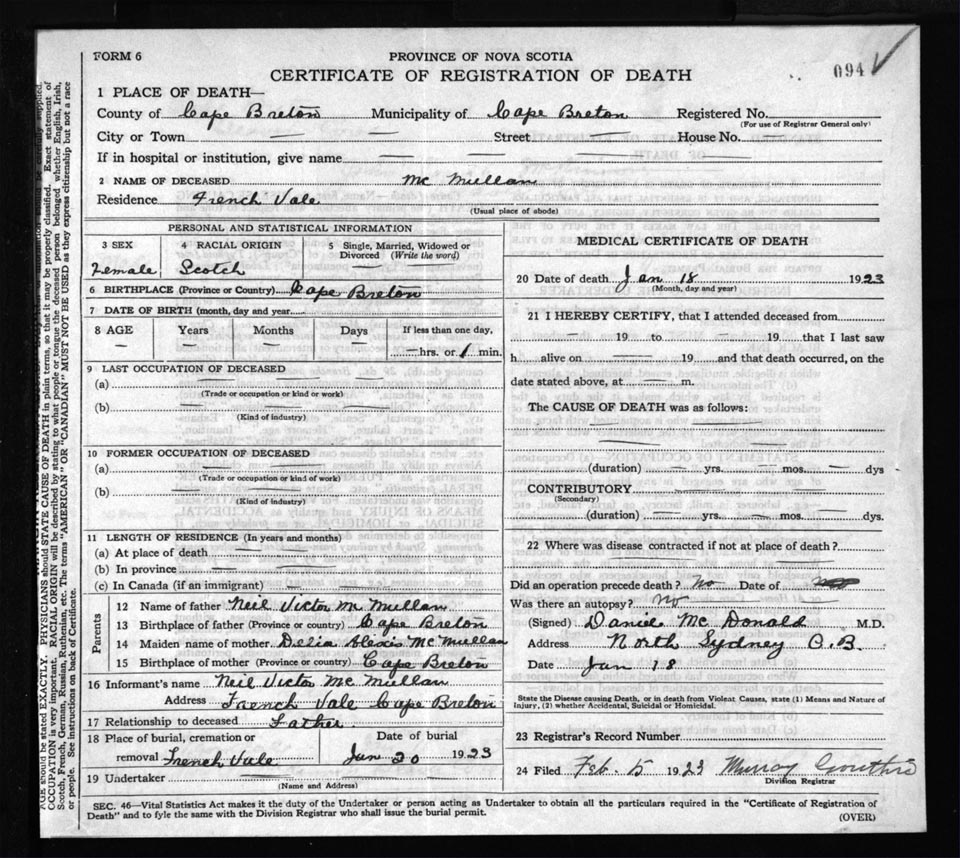 FORM 6
PROVINCE OF NOVA SCOTIA
CERTIFICATE OF REGISTRATION OF DEATH
094
1 PLACE OF DEATH—
County of Cape Breton Municipality of Cape Breton Registered No.
(For use of Registrar General only)
City or Town — — Street — House No. —
If in hospital or institution, give name — — — —
2 NAME OF DECEASED Mc Mullan
Residence French Vale
(Usual place of abode)
PERSONAL AND STATISTICAL INFORMATION
3 SEX 4 RACIAL ORIGIN 5 Single, Married, Widowed or Divorced (Write the word)
Female Scotch — —
6 BIRTHPLACE (Province or Country) Cape Breton
7 DATE OF BIRTH (month, day and year)
8 AGE Years Months Days If less than one day,
— — — — — hrs. or 1 min.
9 LAST OCCUPATION OF DECEASED
(a) — — —
(Trade or occupation or kind or work)
(b) — — —
(Kind of industry)
10 FORMER OCCUPATION OF DECEASED
(a) — —
(Trade or occupation or kind of work)
(b) — —
(Kind of industry)
11 LENGTH OF RESIDENCE (In years and months)
(a) At place of death — —
(b) In province — —
(c) In Canada (if an immigrant) — —
Parents
12 Name of father Neil Victor Mc Mullan
13 Birthplace of father (Province or country) Cape Breton
14 Maiden name of mother Delia Alexis McMullan
15 Birthplace of mother (Province or country) Cape Breton
16 Informant's name Neil Victor Mc Mullan
Address French Vale Cape Breton
17 Relationship to deceased Father
18 Place of burial, cremation or removal French Vale
Date of burial
Jan 20 1923
19 Undertaker — — —
(Name and Address)
MEDICAL CERTIFICATE OF DEATH
20 Date of death Jan 18 1923
(Month, day and year)
21 I HEREBY CERTIFY, that I attended deceased from
— 19 to — 19 that I last saw
h alive on — 19 and that death occurred, on the
date stated above, at — m.
The CAUSE OF DEATH was as follows:
(duration) — yrs. — mos. — dys
CONTRIBUTORY
(Secondary)
(duration) — yrs. — mos. — dys.
22 Where was disease contracted if not at place of death?
Did an operation precede death? No Date of
Was there an autopsy? No
(Signed) Daniel Mc Donald M.D.
Address North Sydney C.B.
Date Jan 18
State the Disease causing Death, or in death from Violent Causes, state (1) Means and Nature of
Injury, (2) whether Accidental, Suicidal or Homicidal.
23 Registrar's Record Number
24 Filed Feb 5 1923 Murray Gouthro
Division Registrar
SEC. 46—Vital Statistics Act makes it the duty of the Undertaker or person acting as Undertaker to obtain all the particulars required in the "Certificate of Registration of
Death" and to fyle the same with the Division Registrar who shall issue the burial permit.
(OVER)
AGE should be stated EXACTLY. PHYSICIANS should STATE CAUSE OF DEATH in plain terms, so that it may be properly classified. Exact statement of
OCCUPATION is very important. RACIAL ORIGIN will be described by stating to what people or tongue the deceased person belonged whether English, Irish,
Scotch, French, German, Russian, Ruthenian, etc. The terms "AMERICAN" OR "CANADIAN" MUST NOT BE USED as they express citizenship but not a race
or people. See instructions on back of Certificate.